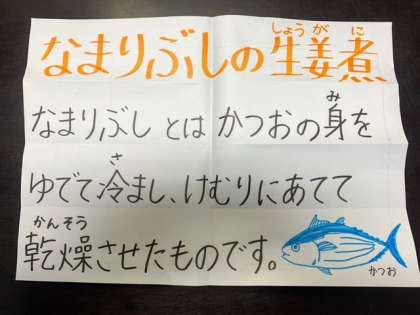 しょうがに
なまりぶしの生姜煮
み
なまりぶしとはかつおの身を
さ
ゆでて冷まし、けむりにあてて
かんそう
乾燥させたものです。
かつお